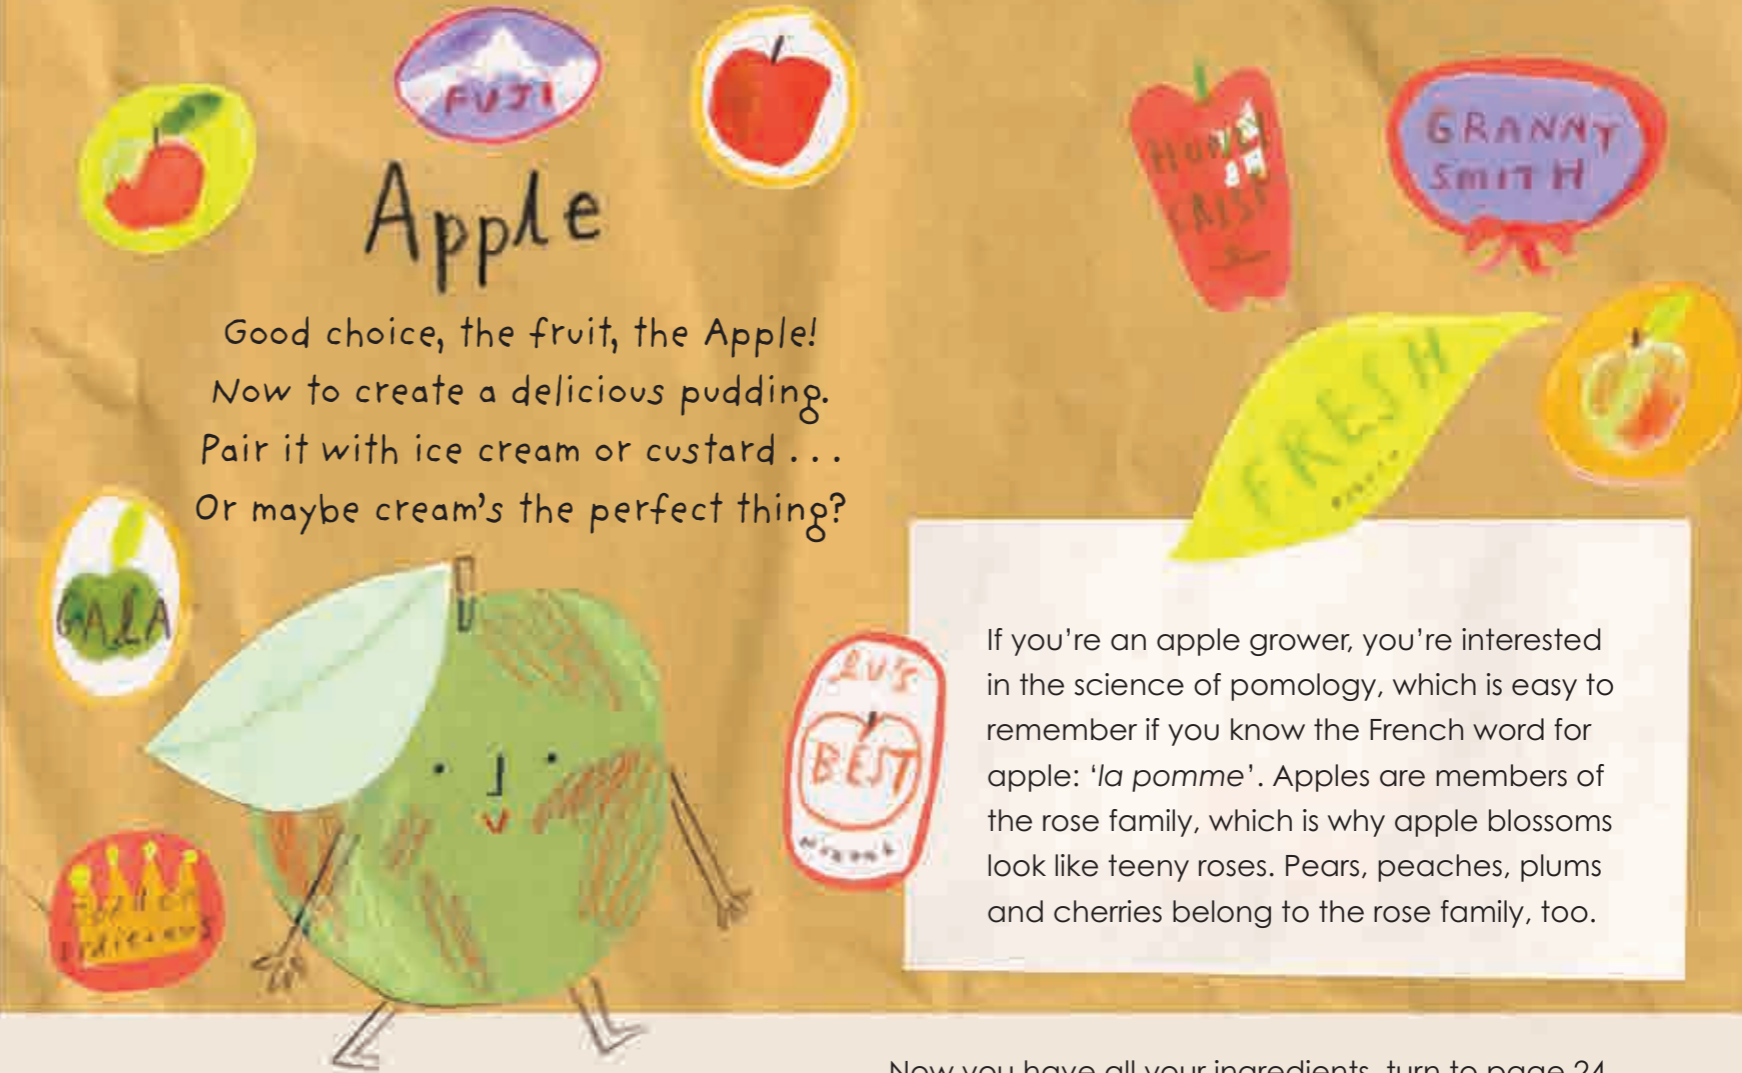 FUJI
Apple
HONEY
CRISP
GRANNY
SMITH
Good choice, the fruit, the Apple!
Now to create a delicious pudding.
Pair it with ice cream or custard . . .
Or maybe cream's the perfect thing?
FRESH
GALA
LU'S
BEST
If you're an apple grower, you're interested
in the science of pomology, which is easy to
remember if you know the French word for
apple: 'la pomme'. Apples are members of
the rose family, which is why apple blossoms
look like teeny roses. Pears, peaches, plums
and cherries belong to the rose family, too.
Now you have all your ingredients, turn to page 24